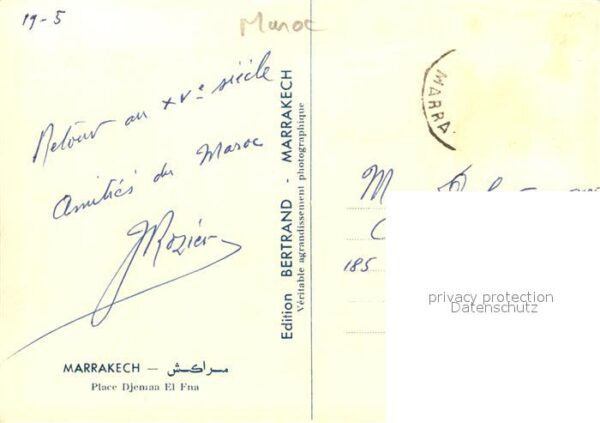 19-5
Maroc
Retour au XVe siècle
Amitiés du Maroc
JRozier
MARRAKECH — مراكش
Place Djemaa El Fna
Edition BERTRAND - MARRAKECH
Véritable agrandissement photographique
MARRA
M
185
privacy protection
Datenschutz